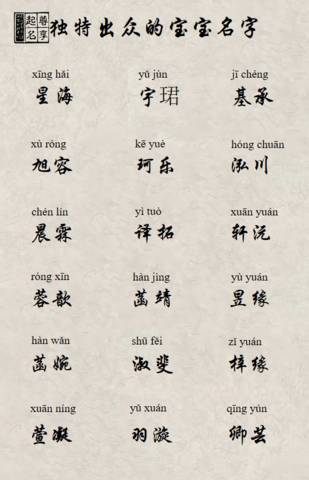 尊享起名 独特出众的宝宝名字
xīng hǎi yǔ jùn jī chéng
星海 宇珺 基承
xù róng kē yuè hóng chuān
旭容 珂乐 泓川
chén lín yì tuò xuān yuán
晨霖 译拓 轩沅
róng xīn hàn jìng yù yuán
蓉歆 菡靖 昱缘
hàn wǎn shū fěi zǐ yuán
菡婉 淑斐 梓缘
xuān níng yǔ xuán qīng yún
萱凝 羽漩 卿芸